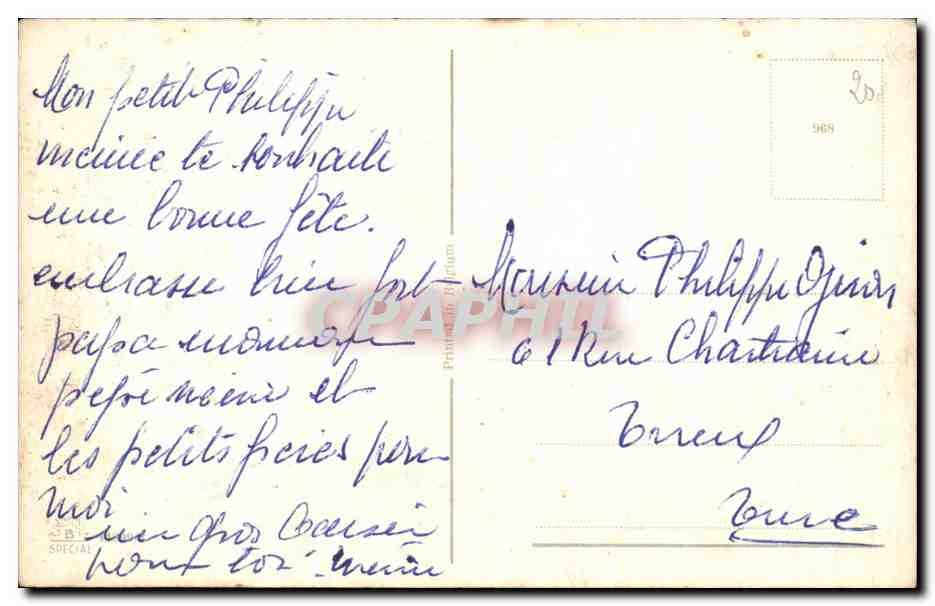 Mon petit Philippe
mémé te souhaite
une bonne fête.
embrasse bien fort
papa maman
pépé mémé et
les petits frères pour
moi
un gros baiser
pour toi mémé
20
968
Printed in Belgium
CPAPHIL
Monsieur Philippe
61 Rue Chartraine
Evreux
Eure
B
SPECIAL